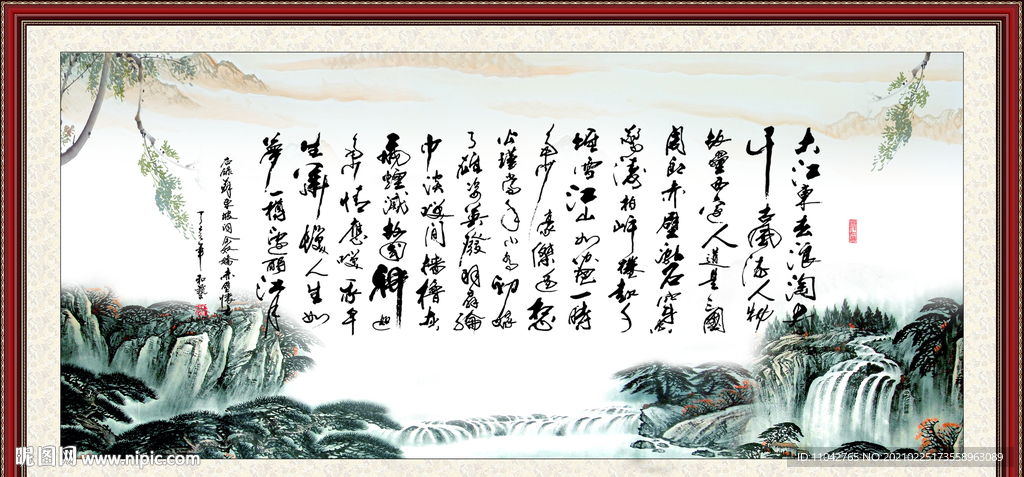 大江東去浪淘尽
千古風流人物
故壘西邊人道是三國
周郎赤壁亂石穿空
驚濤拍岸捲起千
堆雪江山如畫一時
多少豪傑遥想
公瑾當年小喬初嫁
了雄姿英發羽扇綸
巾談笑間檣櫓灰
飛煙滅故國神遊
多情應笑我早
生華髮人生如
夢一樽還酹江月
右錄蘇東坡詞念奴嬌赤壁懷古
昵图网 www.nipic.com
ID:11042765 NO:20210225173558963089